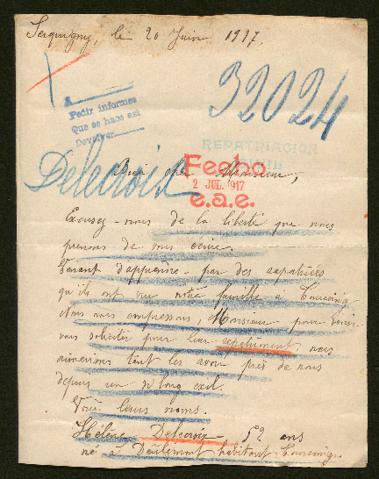 Serquigny, le 20 Juin 1917.
32024
A
Pedir informes
Que se hace est
Devolver
REPATRIACION
Delecroix
Bien cher Monsieur,
Fecho
2 JUL. 1917
e.a.e.
Excusez-nous de la liberté que nous
prenons de vous écrire.
Venant d'apprendre par des rapatriées
qu'ils ont vu notre famille à Tourcoing
Nous nous empressons, Monsieur pour venir
vous solliciter pour leur rapatriement, nous
aimerions tant les avoir près de nous
depuis un si long exil.
Voici leurs noms.
Hélène Delecroix 52 ans
né à Deulémont habitant Tourcoing.